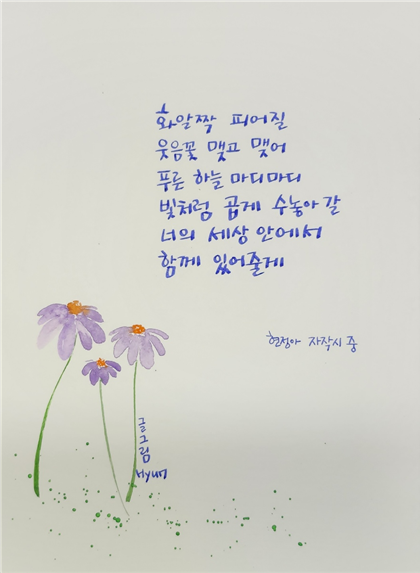 화알짝 피어질
웃음꽃 맺고 맺어
푸른 하늘 마디마디
빛처럼 곱게 수놓아 갈
너의 세상 안에서
함께 있어줄게
현정아 자작시 중
글그림
Hyun